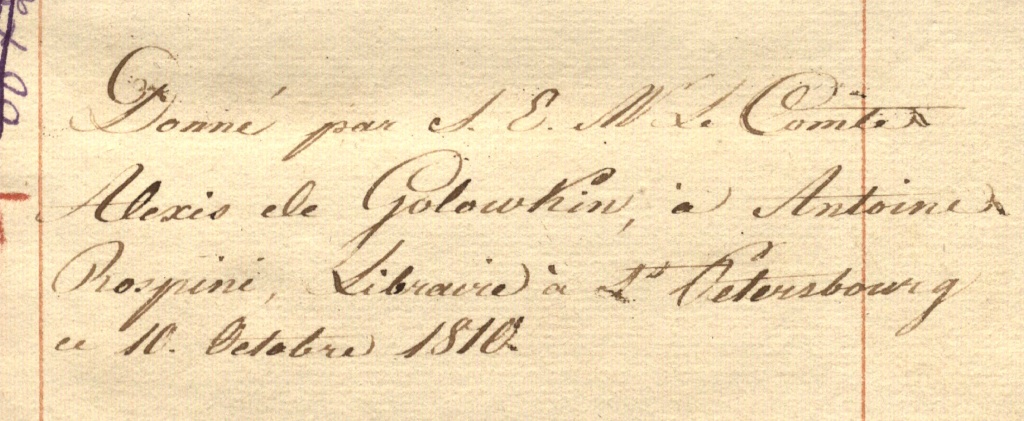 Donné par S. E. Mr Le Comte
Alexis de Golowkin, à Antoine
Rospini, Libraire à St Petersbourg
ce 10. Octobre 1810.